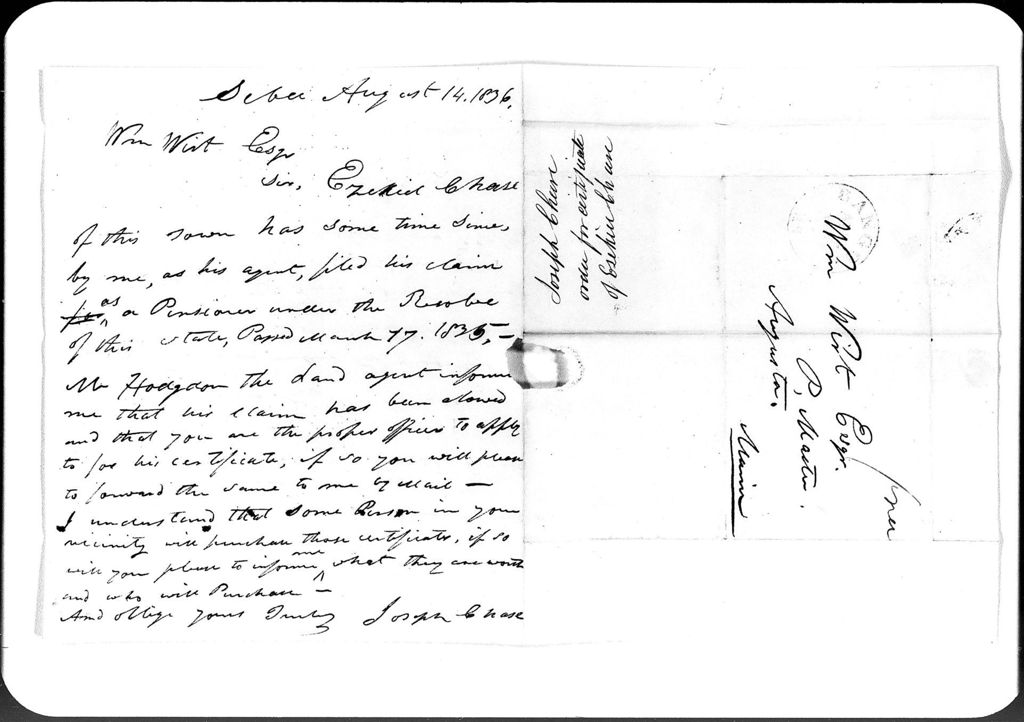 Sebec August 14. 1836.
Wm Wirt Esqr
Sir, Ezekiel Chase
of this town has some time since,
by me, as his agent, filed his claim
as a Pensioner under the Resolve
of this State, Passed March 17. 1835,—
Mr Hodgdon the Land agent informs
me that his claim has been alowed
and that you are the proper officer to apply
to for his certificate, if so you will please
to forward the same to me by Mail —
I understand that some Person in your
vicinity will purchase those certificates, if so
will you please to inform me what they are worth
and who will Purchase —
And oblige yours Truly Joseph Chase
Joseph Chase
order for certificate
of Ezekiel Chase
BANG
Wm Wirt Esqr.
P. Master.
Augusta.
Maine
free